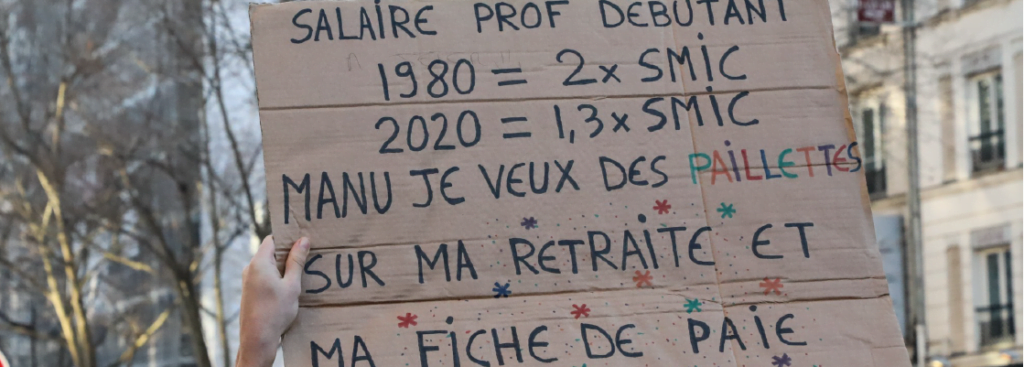 SALAIRE PROF DEBUTANT
1980 = 2x SMIC
2020 = 1,3x SMIC
MANU JE VEUX DES PAILLETTES
SUR MA RETRAITE ET
MA FICHE DE PAIE